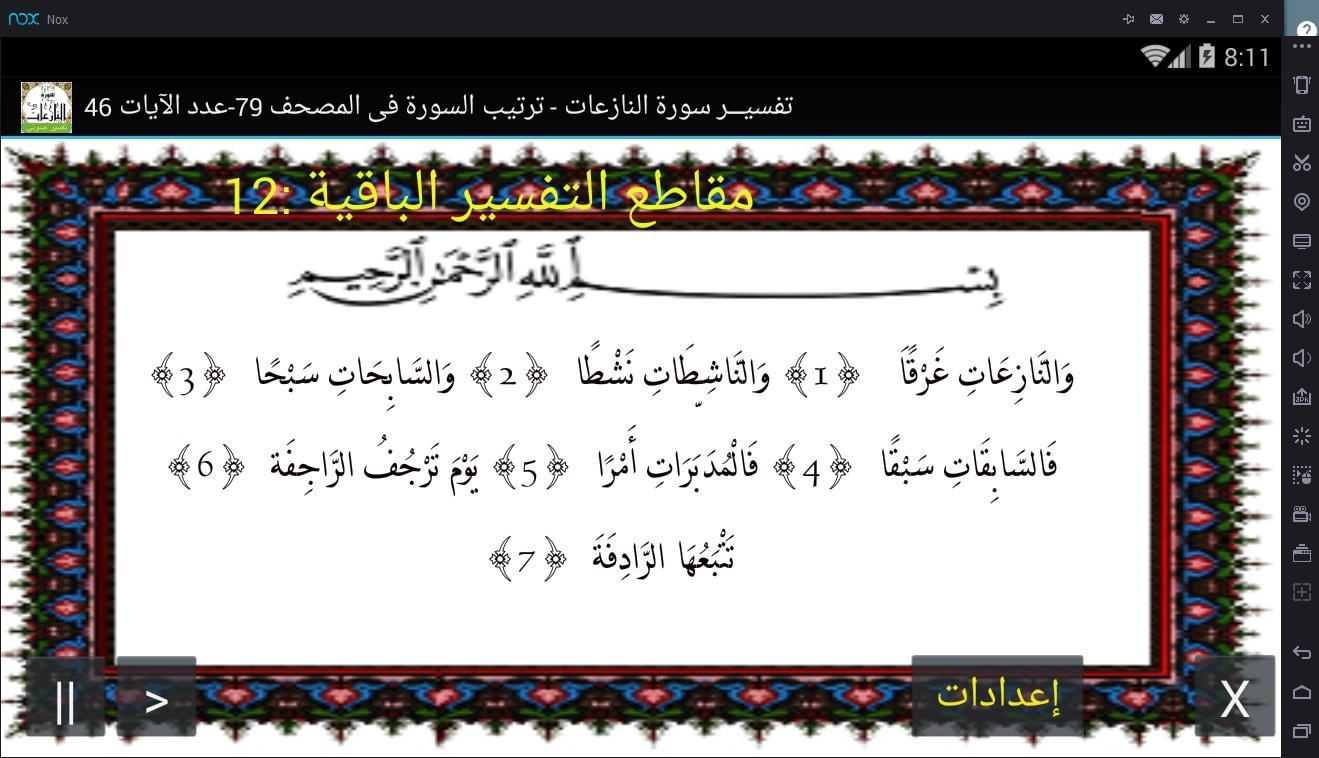 Nox
8:11
تفسيــر سورة النازعات - ترتيب السورة فى المصحف 79-عدد الآيات 46
مقاطع التفسير الباقية :12
بِسْمِ ٱللَّهِ ٱلرَّحْمَٰنِ ٱلرَّحِيمِ
وَالنَّازِعَاتِ غَرْقًا ﴿1﴾ وَالنَّاشِطَاتِ نَشْطًا ﴿2﴾ وَالسَّابِحَاتِ سَبْحًا ﴿3﴾
فَالسَّابِقَاتِ سَبْقًا ﴿4﴾ فَالْمُدَبِّرَاتِ أَمْرًا ﴿5﴾ يَوْمَ تَرْجُفُ الرَّاجِفَة ﴿6﴾
تَتْبَعُهَا الرَّادِفَةَ ﴿7﴾
||
>
إعدادات
X